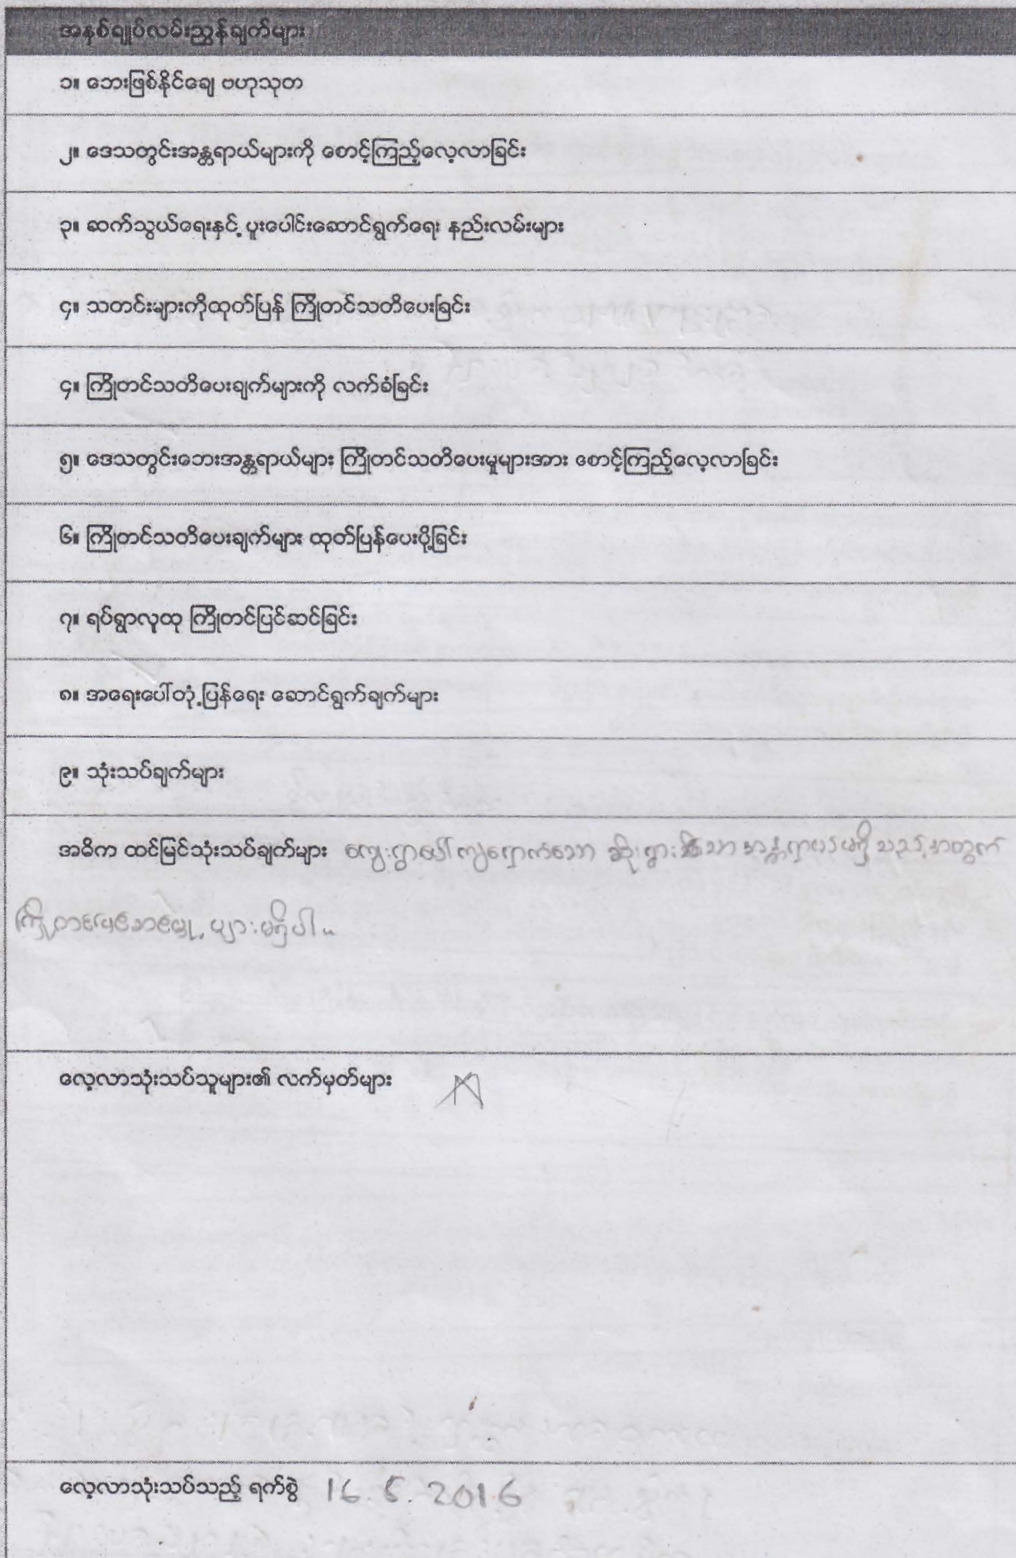 အနှစ်ချုပ်လမ်းညွှန်ချက်များ
၁။ ဘေးဖြစ်နိုင်ချေ ဗဟုသုတ
၂။ ဒေသတွင်းအန္တရာယ်များကို စောင့်ကြည့်လေ့လာခြင်း
၃။ ဆက်သွယ်ရေးနှင့် ပူးပေါင်းဆောင်ရွက်ရေး နည်းလမ်းများ
၄။ သတင်းများကိုထုတ်ပြန် ကြိုတင်သတိပေးခြင်း
၄။ ကြိုတင်သတိပေးချက်များကို လက်ခံခြင်း
၅။ ဒေသတွင်းဘေးအန္တရာယ်များ ကြိုတင်သတိပေးမှုများအား စောင့်ကြည့်လေ့လာခြင်း
၆။ ကြိုတင်သတိပေးချက်များ ထုတ်ပြန်ပေးပို့ခြင်း
၇။ ရပ်ရွာလူထု ကြိုတင်ပြင်ဆင်ခြင်း
၈။ အရေးပေါ်တုံ့ပြန်ရေး ဆောင်ရွက်ချက်များ
၉။ သုံးသပ်ချက်များ
အဓိက ထင်မြင်သုံးသပ်ချက်များ ကျေးရွာပေါ် ကျရောက်သော ဆိုးရွားသော အန္တရာယ်မရှိသည့်အတွက်
များမရှိပါ။
လေ့လာသုံးသပ်သူများ၏ လက်မှတ်များ
လေ့လာသုံးသပ်သည့် ရက်စွဲ 16.5.2016